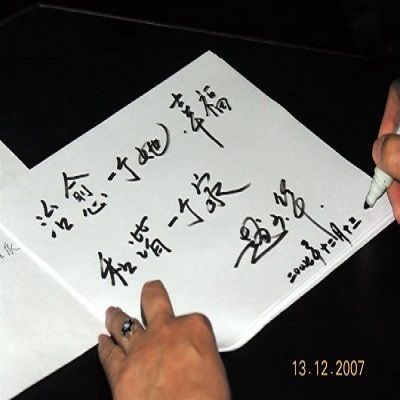 治愈一个她 幸福
和谐一个家
2006年十二月十二
13.12.2007